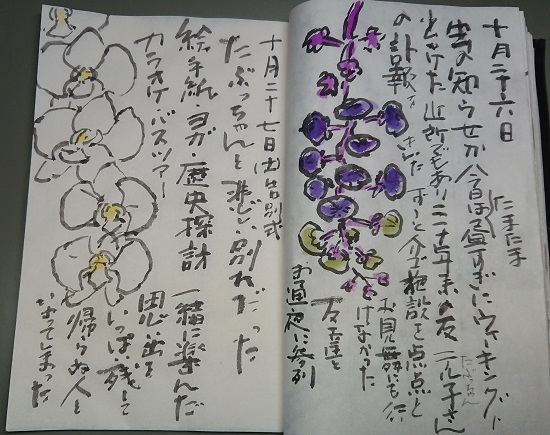 十月二十六日
たまたま
虫の知らせか今日は昼すぎにウォーキングに
出かけた 近所でもあり二十年来の友 子さん
の訃報 ずーと介護施設を点点と
お見舞いにも行
けなかった
友達と
お通夜に参列
十月二十七日(土)告別式
たぶっちゃんと悲しい別れだった
絵手紙・ヨガ・歴史探訪 一緒に楽んだ
カラオケ・バスツアー 思い出を
いっぱい残して
帰らぬ人と
なってしまった